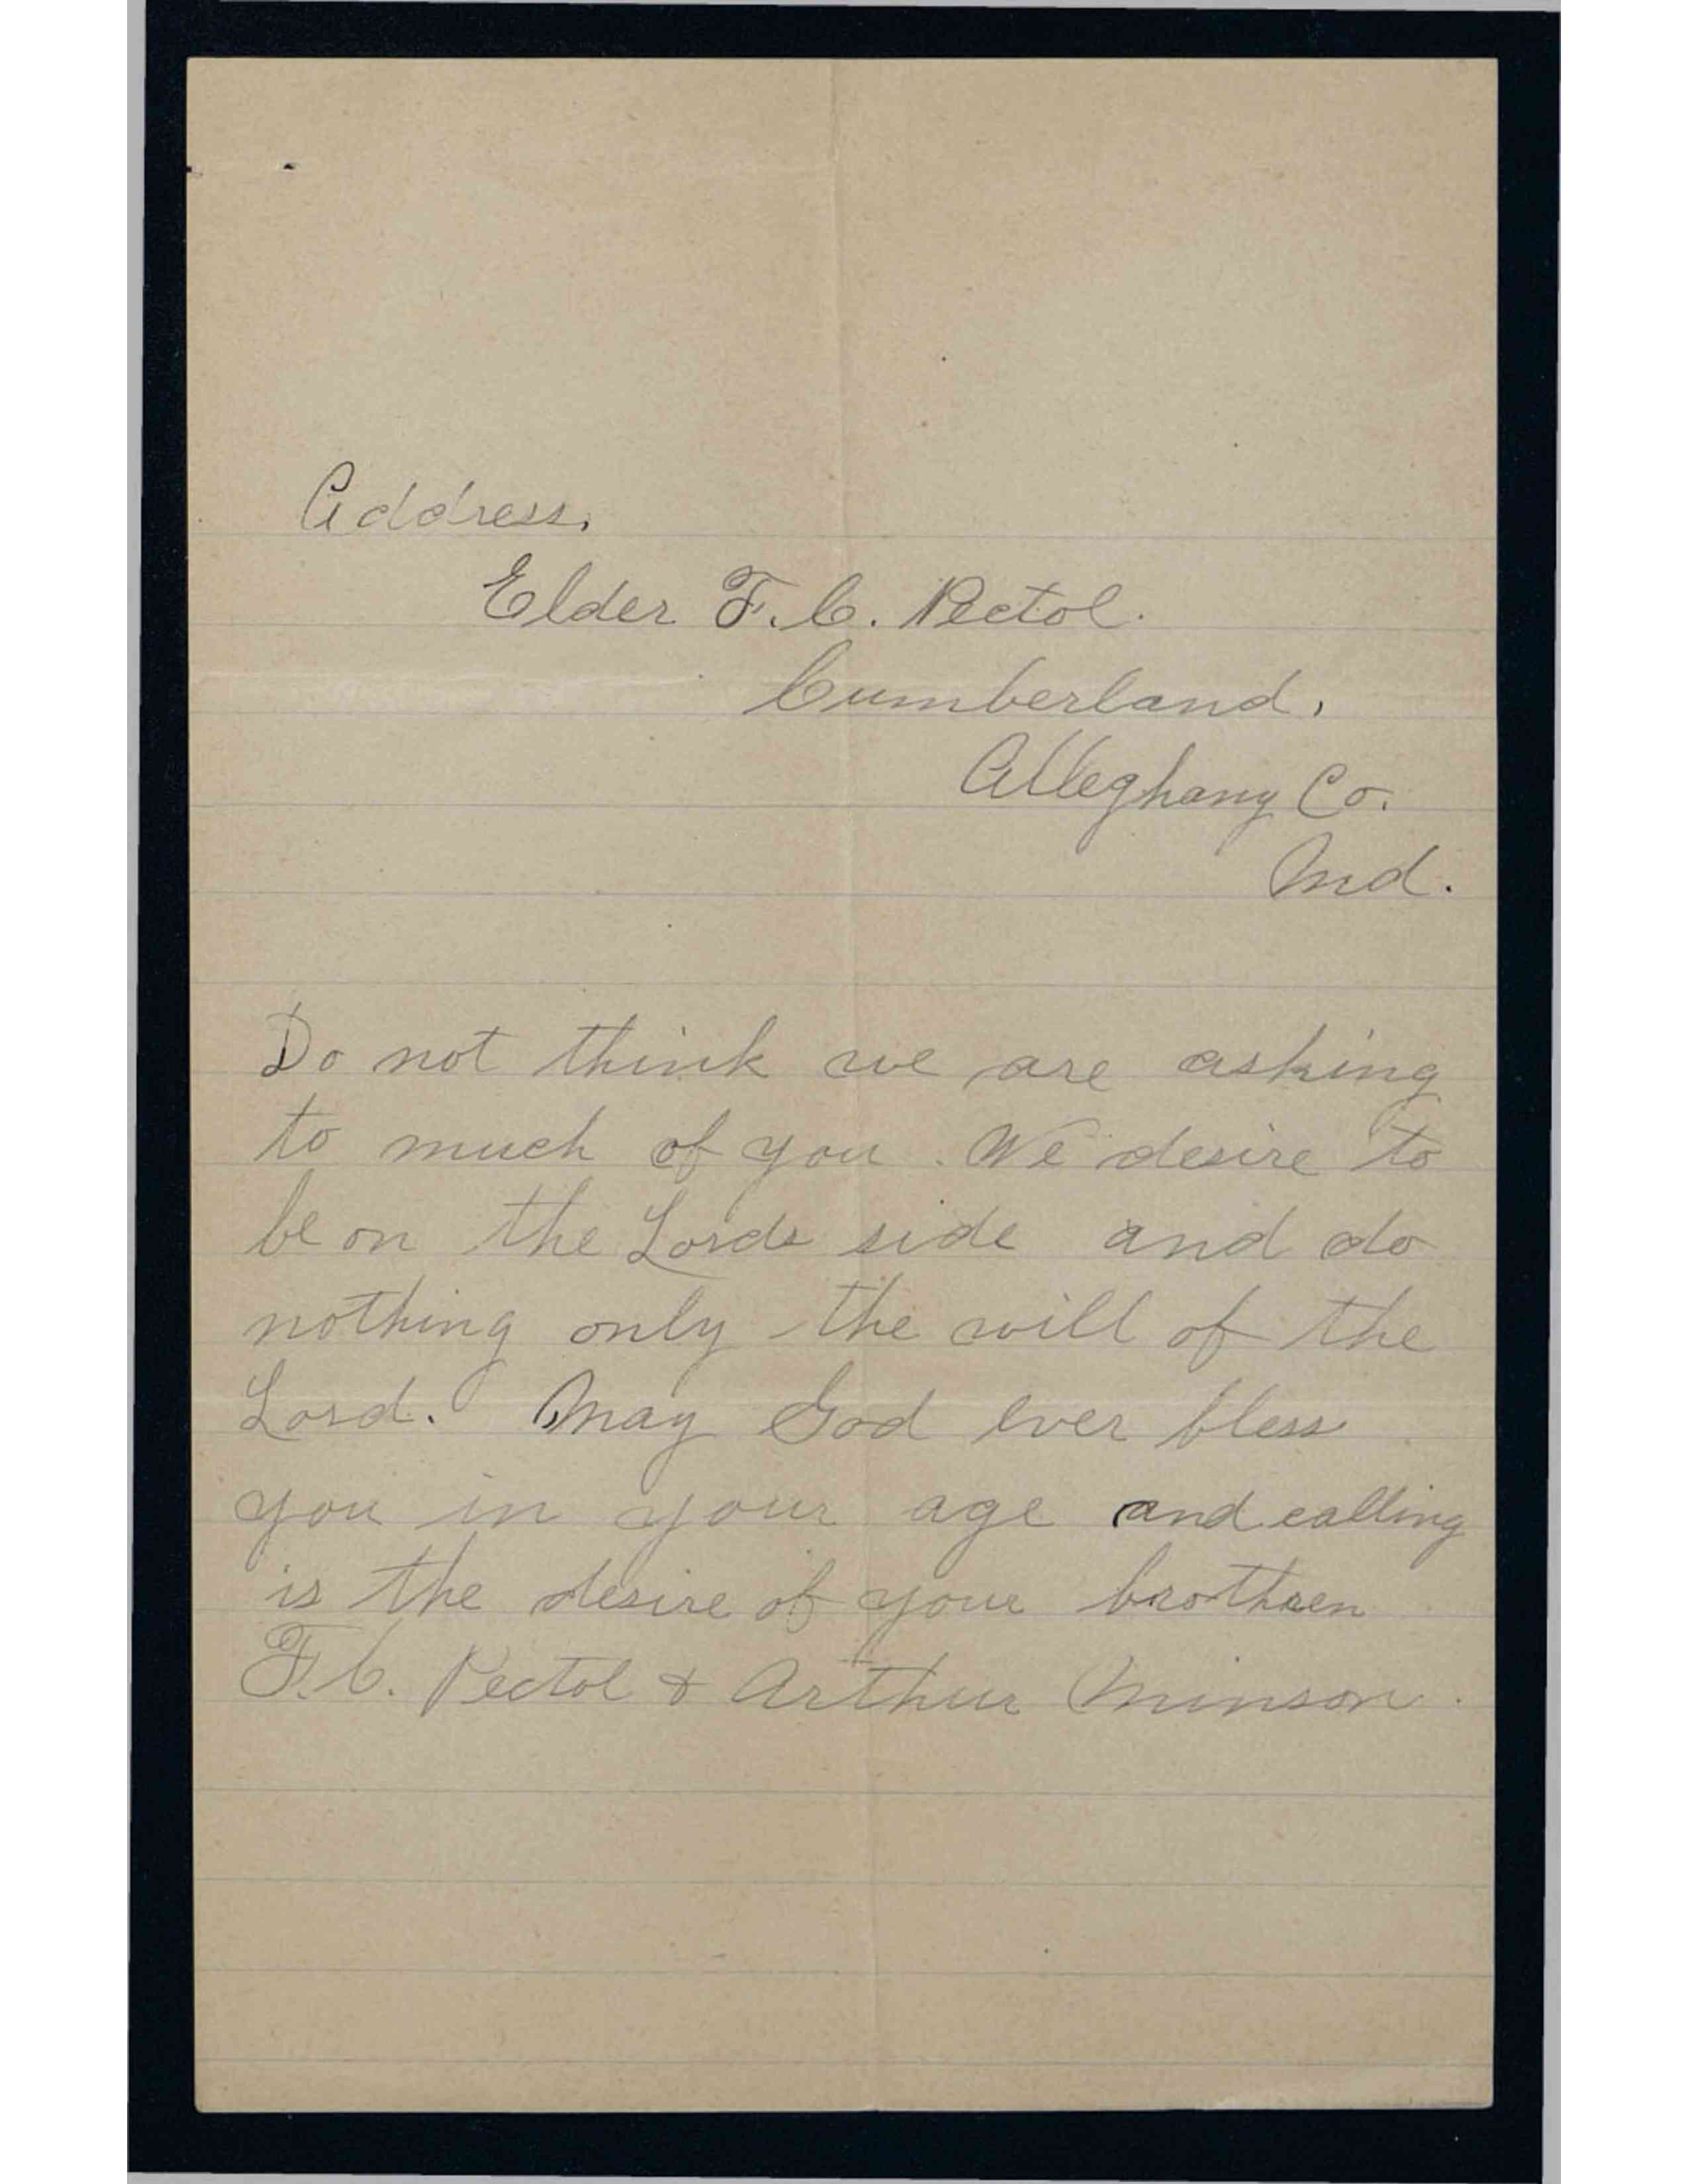 Address.
Elder F. C. Pectol.
Cumberland,
Alleghany Co.
Md.
Do not think we are asking
to much of you. We desire to
be on the Lords side and do
nothing only the will of the
Lord. May God ever bless
you in your age and calling
is the desire of your brothren
F. C. Pectol & Arthur Minson.